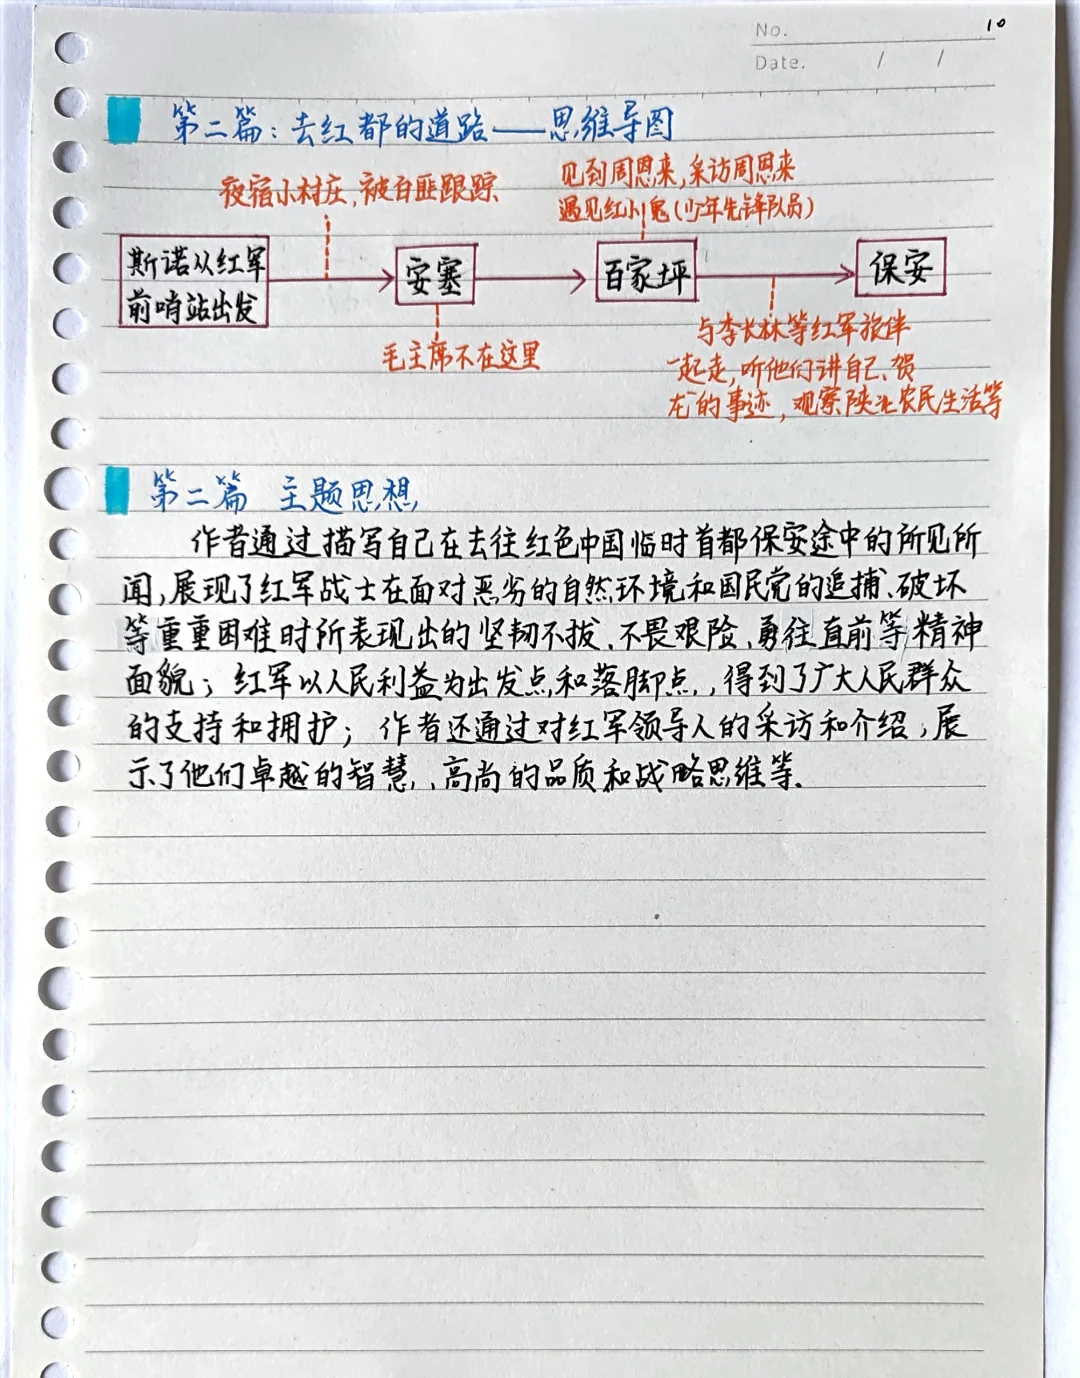 No. 10
Date. / /
第二篇：去红都的道路——思维导图
夜宿小村庄，被白匪跟踪
见到周恩来，采访周恩来
遇见红小鬼（少年先锋队员）
斯诺从红军
前哨站出发
安塞
百家坪
保安
毛主席不在这里
与李长林等红军旅伴
一起走，听他们讲自己、贺
龙的事迹，观察陕北农民生活等
第二篇 主题思想
作者通过描写自己在去往红色中国临时首都保安途中的所见所
闻，展现了红军战士在面对恶劣的自然环境和国民党的追捕、破坏
等重重困难时所表现出的坚韧不拔、不畏艰险、勇往直前等精神
面貌；红军以人民利益为出发点和落脚点，，得到了广大人民群众
的支持和拥护；作者还通过对红军领导人的采访和介绍，展
示了他们卓越的智慧，、高尚的品质和战略思维等.